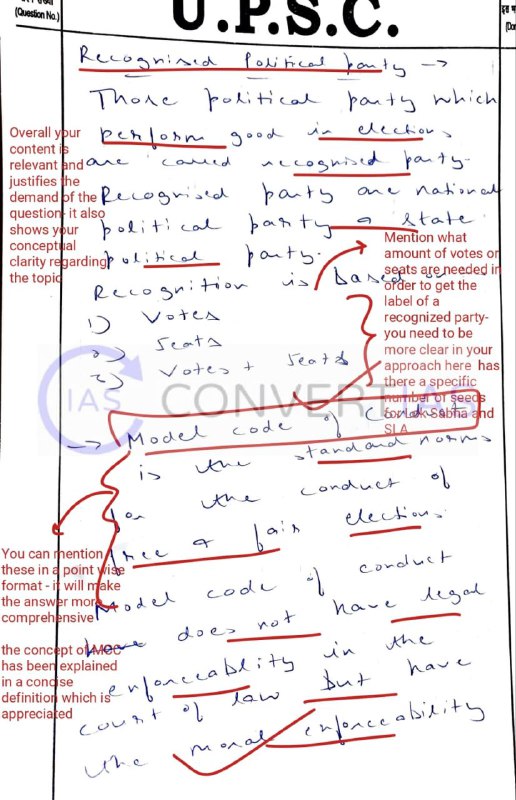 (Question No.)
U.P.S.C.
Recognised Political party →
Those political party which
perform good in elections
are called recognised party.
Recognised party are national
political party & state
political party.
Recognition is based on
1) Votes
2) Seats
3) Votes + Seats
→ Model code of Conduct
is the standard norms
for the conduct of
free & fair elections.
Model code of conduct
does not have legal
enforceablity in the
court of law but have
the moral enforceability
Overall your
content is
relevant and
justifies the
demand of the
question- it also
shows your
conceptual
clarity regarding
the topic
Mention what
amount of votes or
seats are needed in
order to get the
label of a
recognized party-
you need to be
more clear in your
approach here has
there a specific
number of seeds
for Lok Sabha and
SLA
You can mention
these in a point wise
format - it will make
the answer more
comprehensive
the concept of MCC
has been explained
in a concise
definition which is
appreciated
IAS CONVERT IAS